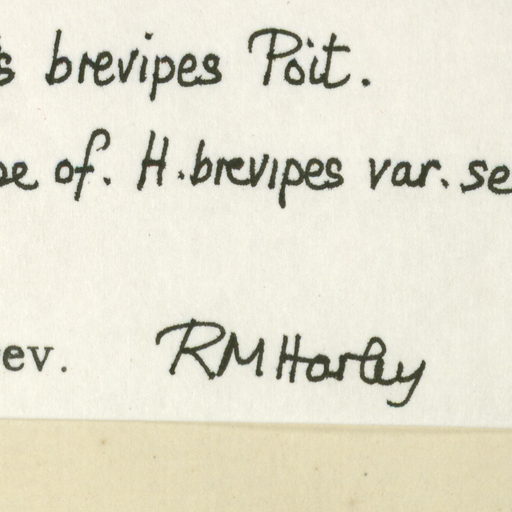 s brevipes Poit.
pe of. H. brevipes var. se
ev. RM Harley